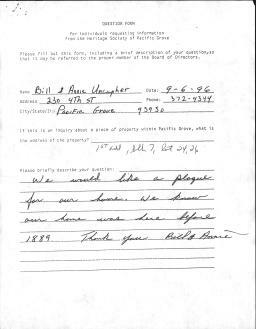 QUESTION FORM
For individuals requesting information
from the Heritage Society of Pacific Grove
Please fill out this form, including a brief description of your question, so
that it may be referred to the proper member of the Board of Directors.
Name Bill & Annie Date: 9-6-96
Address 230 4TH ST Phone: 372-4344
City/State/Zip Pacific Grove 93950
If this is an inquiry about a piece of property within Pacific Grove, what is
the address of the property? 1st Add, Blk 7, Lot 24, 26
Please briefly describe your question:
We would like a plaque
for our home. We know
our home was here before
1889 Thank you Bill & Annie